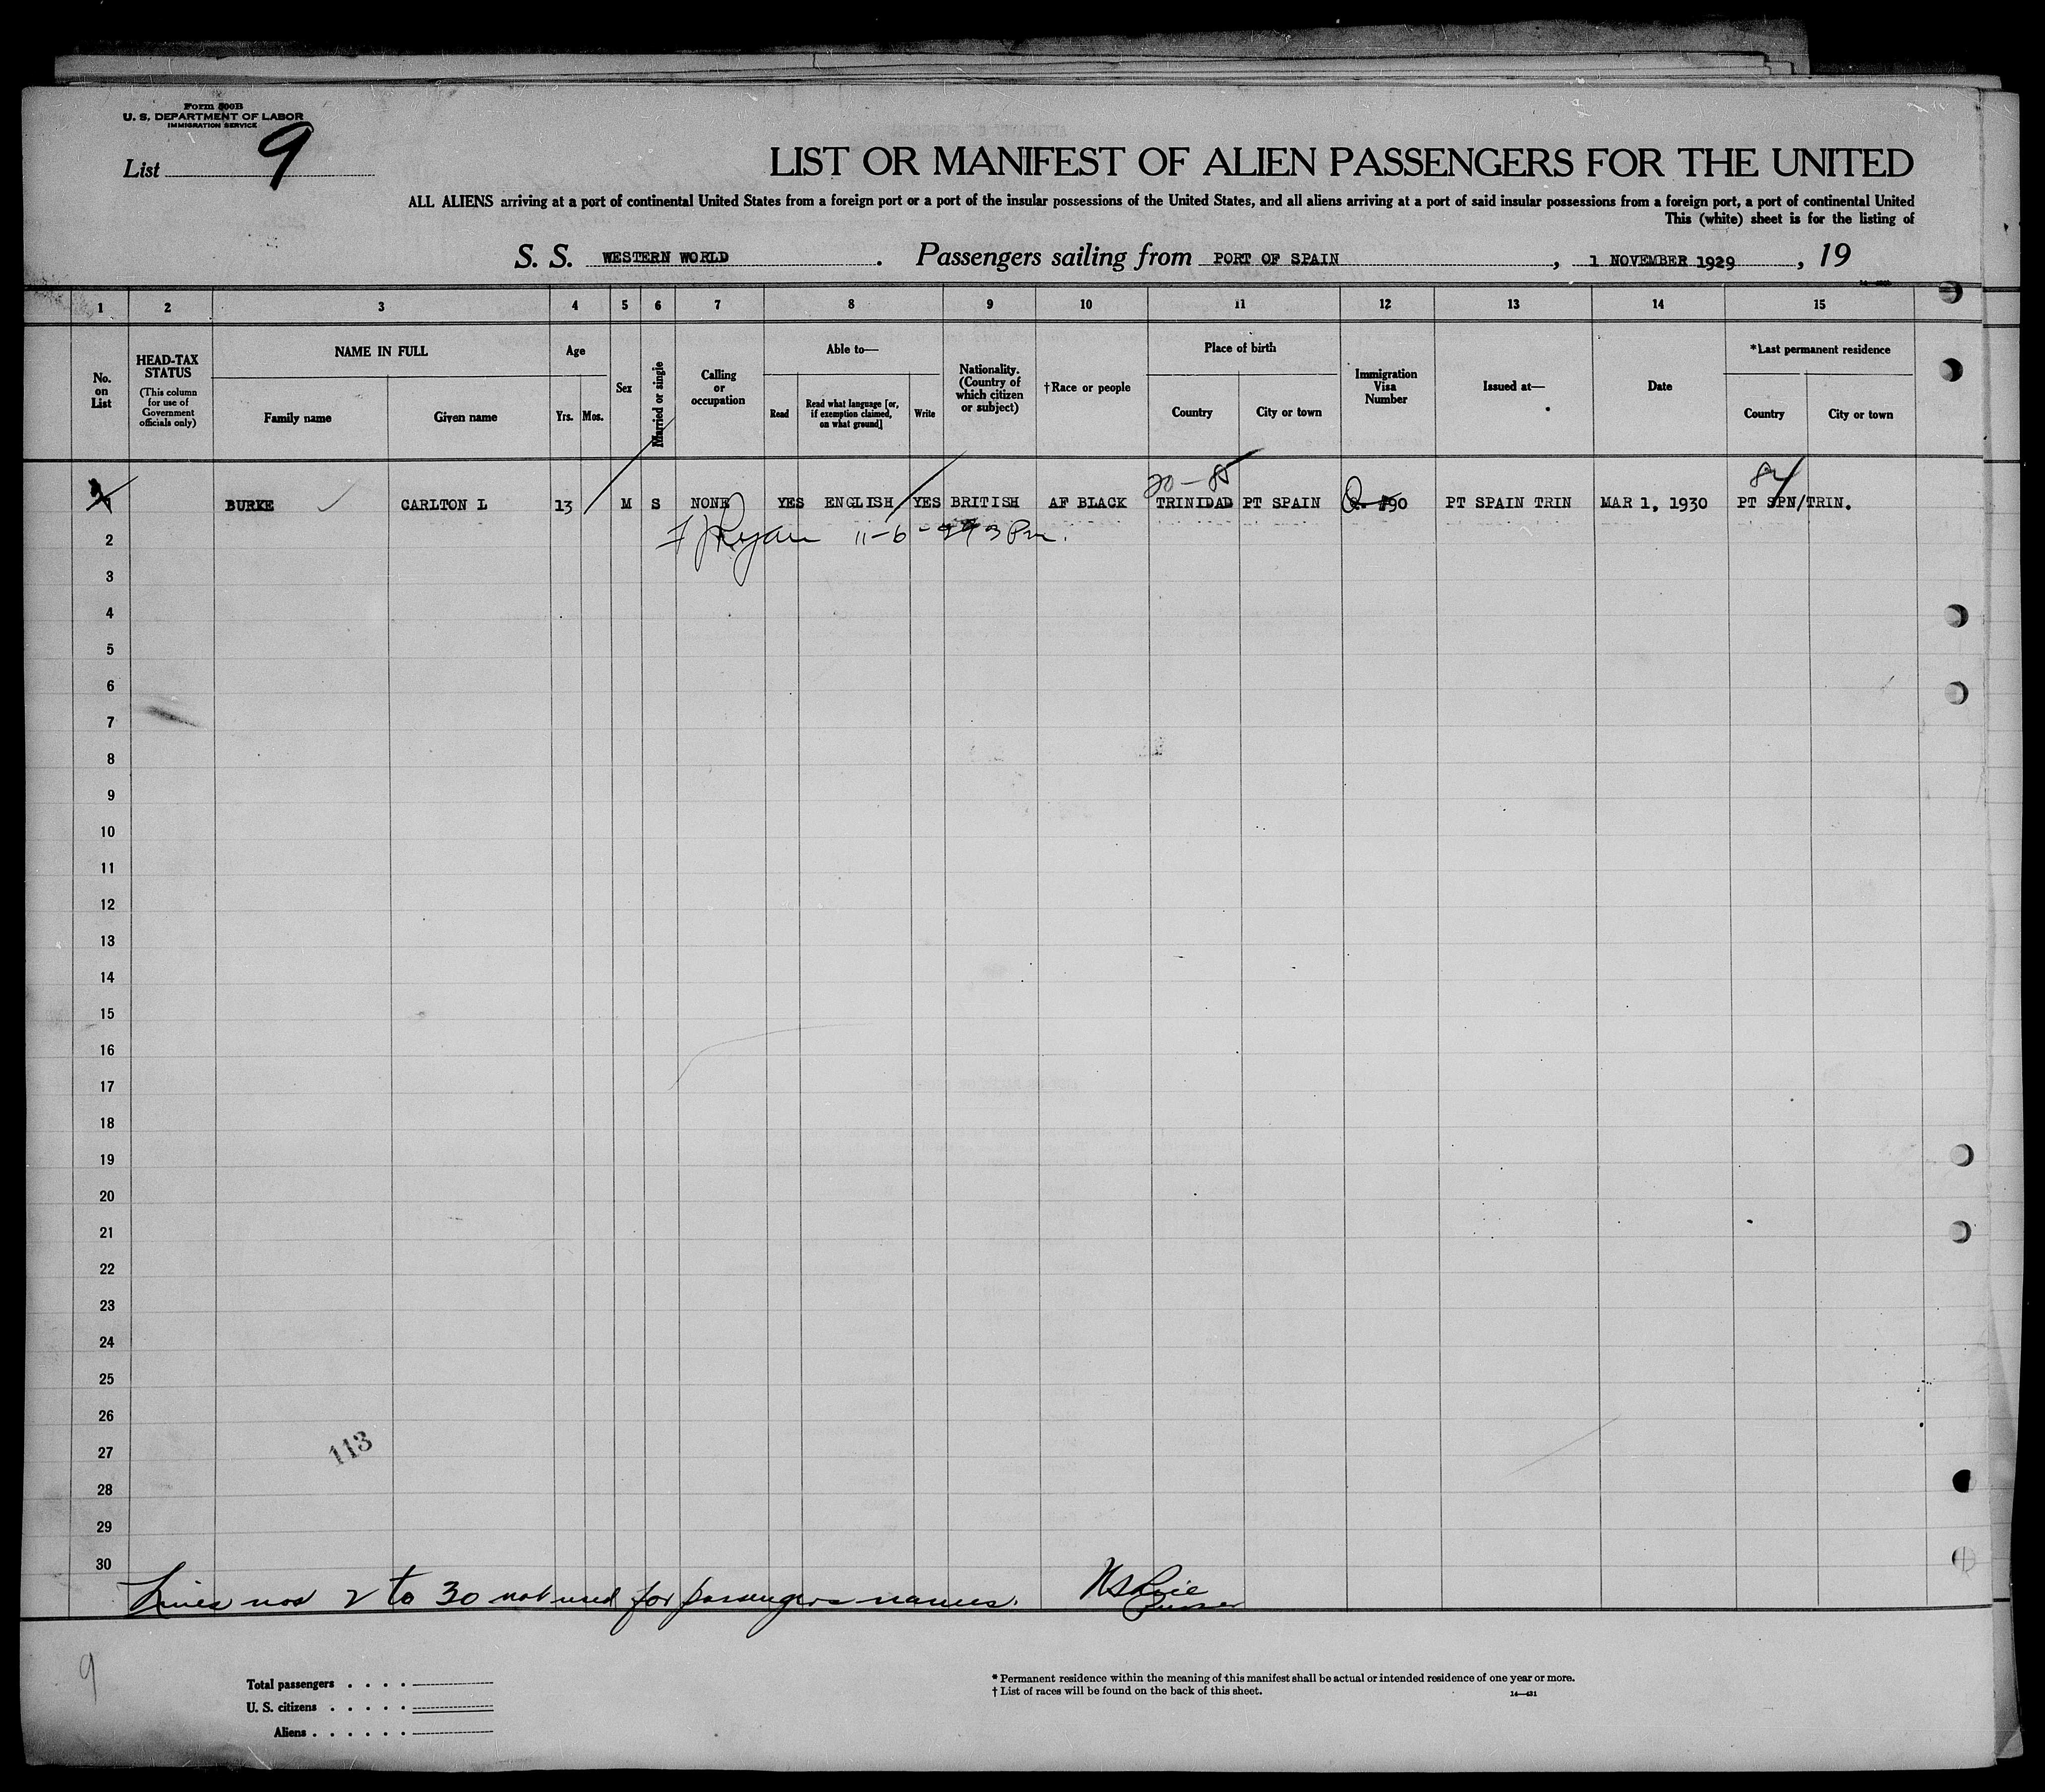 Form 500B
U. S. DEPARTMENT OF LABOR
IMMIGRATION SERVICE
List 9
LIST OR MANIFEST OF ALIEN PASSENGERS FOR THE UNITED
ALL ALIENS arriving at a port of continental United States from a foreign port or a port of the insular possessions of the United States, and all aliens arriving at a port of said insular possessions from a foreign port, a port of continental United
This (white) sheet is for the listing of
S. S. WESTERN WORLD. Passengers sailing from PORT OF SPAIN, 1 NOVEMBER 1929, 19
1 2 3 4 5 6 7 8 9 10 11 12 13 14 15
No. on List
HEAD-TAX STATUS (This column for use of Government officials only)
NAME IN FULL
Family name
Given name
Age
Yrs.
Mos.
Sex
Married or single
Calling or occupation
Able to—
Read
Read what language [or, if exemption claimed, on what ground]
Write
Nationality. (Country of which citizen or subject)
†Race or people
Place of birth
Country
City or town
Immigration Visa Number
Issued at—
Date
*Last permanent residence
Country
City or town
20-85
84
BURKE CARLTON L 13 M S NONE YES ENGLISH YES BRITISH AF BLACK TRINIDAD PT SPAIN 90 PT SPAIN TRIN MAR 1, 1930 PT SPN/TRIN.
2 Ryan 11-6-29 3 Pm.
3
4
5
6
7
8
9
10
11
12
13
14
15
16
17
18
19
20
21
22
23
24
25
26
27
113
28
29
30
Lines nos 2 to 30 not used for passengers names.
Purser
9
Total passengers . . . .
U. S. citizens . . . . .
Aliens . . . . . .
* Permanent residence within the meaning of this manifest shall be actual or intended residence of one year or more.
† List of races will be found on the back of this sheet.
14—431